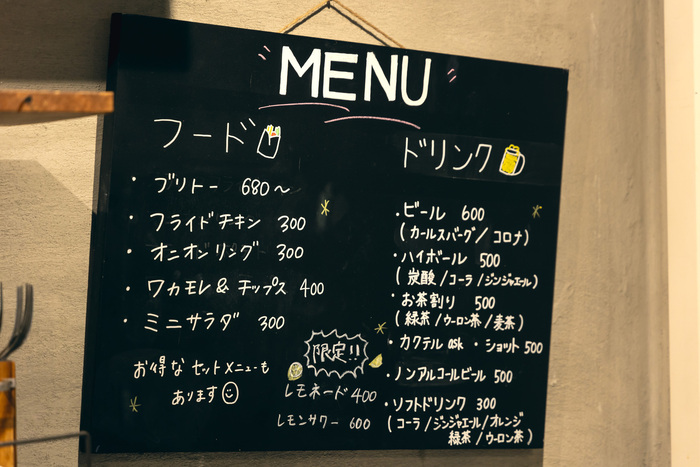 MENU
フード
・ブリトー 680〜
・フライドチキン 300
・オニオンリング 300
・ワカモレ&チップス 400
・ミニサラダ 300
お得なセットメニューも
あります
限定!!
レモネード 400
レモンサワー 600
ドリンク
・ビール 600
(カールスバーグ/コロナ)
・ハイボール 500
(炭酸/コーラ/ジンジャエール)
・お茶割り 500
(緑茶/ウーロン茶/麦茶)
・カクテル ask ・ショット 500
・ノンアルコールビール 500
・ソフトドリンク 300
(コーラ/ジンジャエール/オレンジ
緑茶/ウーロン茶)